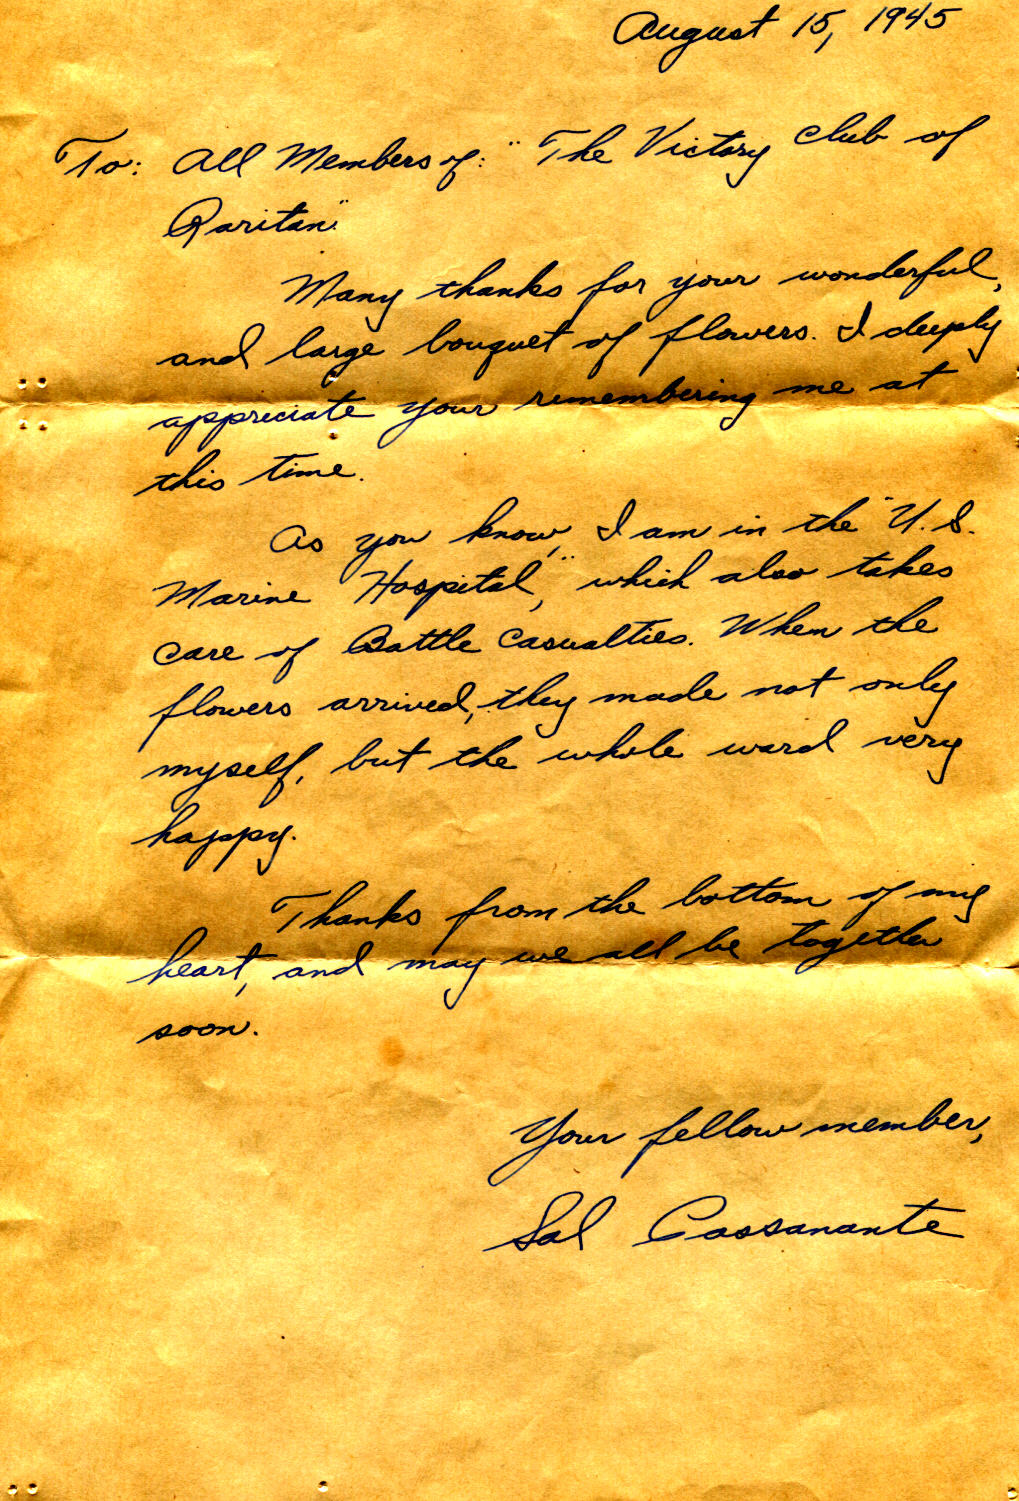 August 15, 1945
To: All Members of: "The Victory Club of
Raritan"
Many thanks for your wonderful,
and large bouquet of flowers. I deeply
appreciate your remembering me at
this time.
As you know, I am in the "U.S.
Marine Hospital," which also takes
care of Battle Casualties. When the
flowers arrived, they made not only
myself, but the whole ward very
happy.
Thanks from the bottom of my
heart, and may we all be together
soon.
Your fellow member,
Sal Cassanante